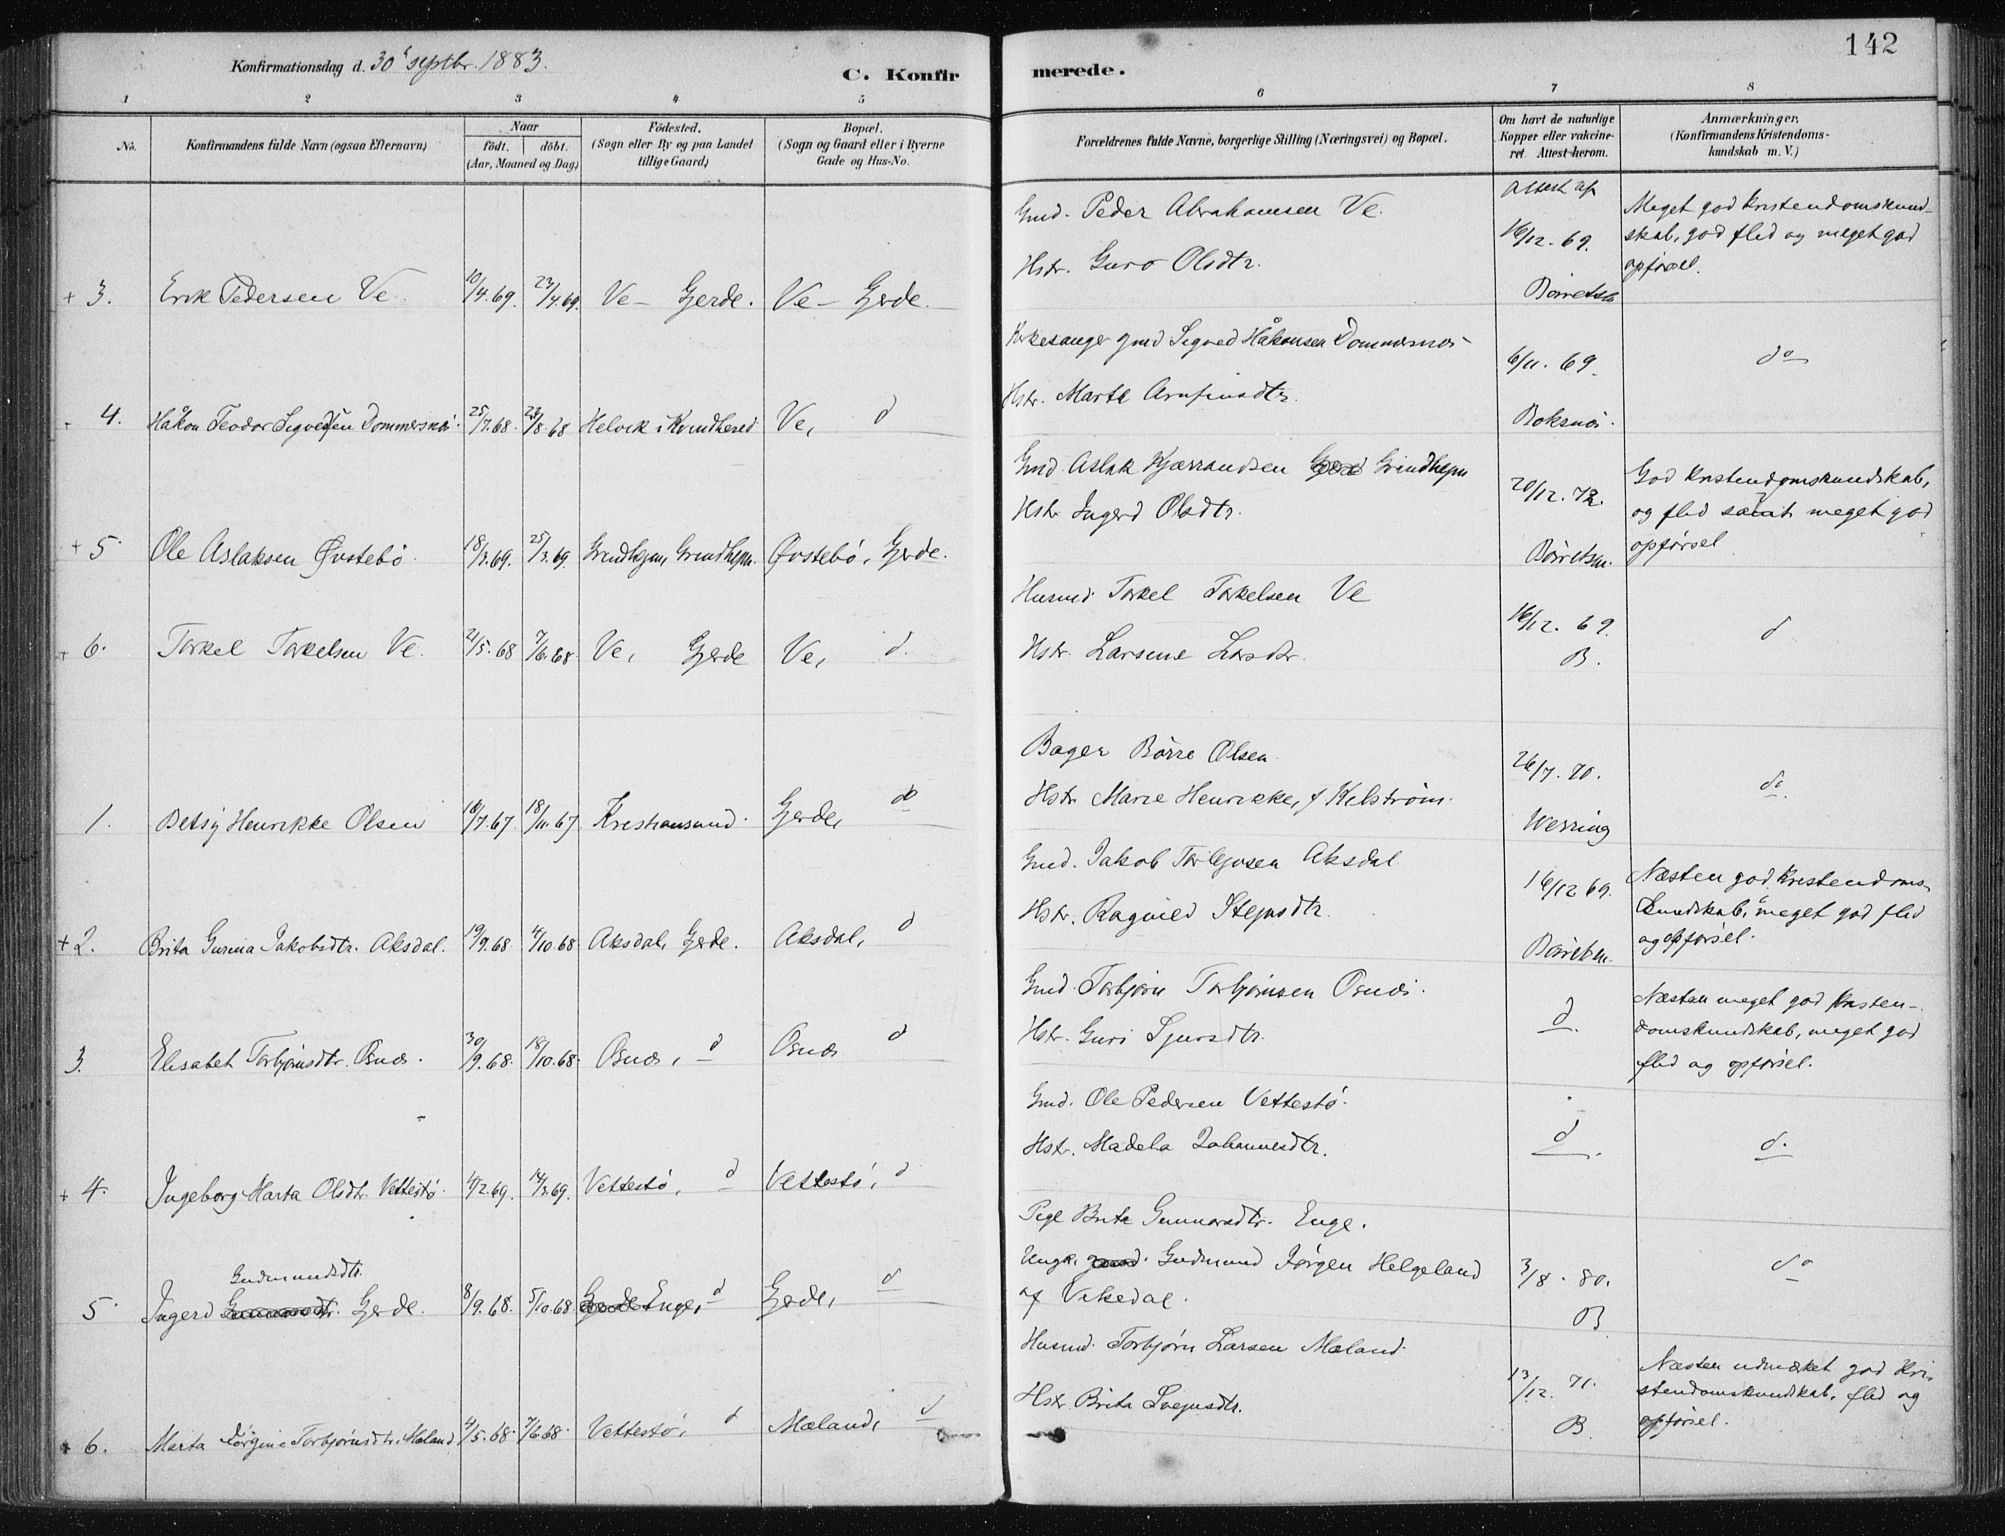 142
Konfirmationsdag d. 30 septbr. 1883.
C. Konfirmerede.
1 2 3 4 5 6 7 8
No.
Konfirmandens fulde Navn (ogsaa Efternavn)
Naar
födt. döbt.
(Aar, Maaned og Dag)
Födested.
(Sogn eller By og paa Landet
tillige Gaard)
Bopæl.
(Sogn og Gaard eller i Byerne
Gade og Hus-No.
Forældrenes fulde Navne, borgerlige Stilling (Næringsvei) og Bopæl.
Om havt de naturlige
Kopper eller vakcine-
ret. Attest herom.
Anmærkninger.
(Konfirmandens Kristendoms-
kundskab m. V.)
Gmd. Peder Abrahamsen Ve.
Hstr. Guro Olsdtr.
Attest af
16/12. 69.
Meget god kristendomskund-
skab, god flid og meget god
opførsel.
+ 3. Erik Pedersen Ve 10/4.69. 23/4.69. Ve - Gjerde. Ve - Gjerde.
Kirkesanger gmd Sigved Håkonsen Dommersnæs
Hstr. Marte Arnfinsdtr.
6/11. 69.
Boksnæs.
do
4. Håkon Teodor Sigvedsen Dommersnæs. 25/7.68. 23/8.68 Helvik i Kvindhered Ve, d
Gmd Aslak Kjærrandsen Grindhejm
Hstr Ingerd Olsdtr.
20/12. 72.
God kristendomskundskab,
og flid samt meget god
opførsel
+ 5. Ole Aslaksen Øvstebö 18/3.69. 25/3.69. Grindhejm, Grindhejm. Øvstebö, Gjerde.
Husmd Torkel Torkelsen Ve
Hstr. Larsine Larsdtr.
16/12. 69.
B.
d
+ 6. Torkel Torkelsen Ve. 2/5.68 7/6.68 Ve, Gjerde Ve, d.
Bager Börre Olsen.
Hstr Marie Henrikke, f Kilström.
26/7. 70.
Werring
do.
1. Betsy Henrikke Olsen 10/7.67 18/11.67 Kristiansund. Gjerde, do
Gmd. Jakob Torbjørnsen Aksdal
Hstr. Ragnild Stejnsdtr.
16/12 69.
Næsten god kristendoms-
kundskab, meget god flid
og opførsel.
+ 2. Brita Gurina Jakobsdtr. Aksdal. 19/9.68 4/10.68 Aksdal, Gjerde. Aksdal, d
Gmd. Torbjørn Torbjørnsen Osnæs.
Hstr. Guri Sjursdtr.
d.
Næsten meget god kristen-
domskundskab, meget god
flid og opførsel.
3. Elisabet Torbjørnsdtr. Osnæs. 30/9.68. 18/10.68. Osnæs, d Osnæs d
Gmd. Ole Pedersen Vettestö.
Hstr. Madela Johannesdtr.
d.
d.
+ 4. Ingeborg Marta Olsdtr. Vettestö. 4/2.69. 14/3.69. Vettestö, d Vettestö, d
Pige Brita Gunnarsdtr. Enge.
Ungk. Gudmund Jørgen Helgeland
af Vikedal.
3/8. 80.
B
do
Gudmundsdtr.
5. Ingerd Gunnarsdtr. Gjerde. 8/9.68. 5/10.68 Gjerde Enge, d Gjerde, d
Husmd. Torbjørn Larsen Mæland
Hstr Brita Svejnsdtr.
13/12. 71.
B.
Næsten udmærket god kri-
stendomskundskab, flid og
opførsel.
6. Marta Jørgine Torbjørnsdtr. Mæland 4/5.68. 7/6.68. Vettestö, d Mæland, d